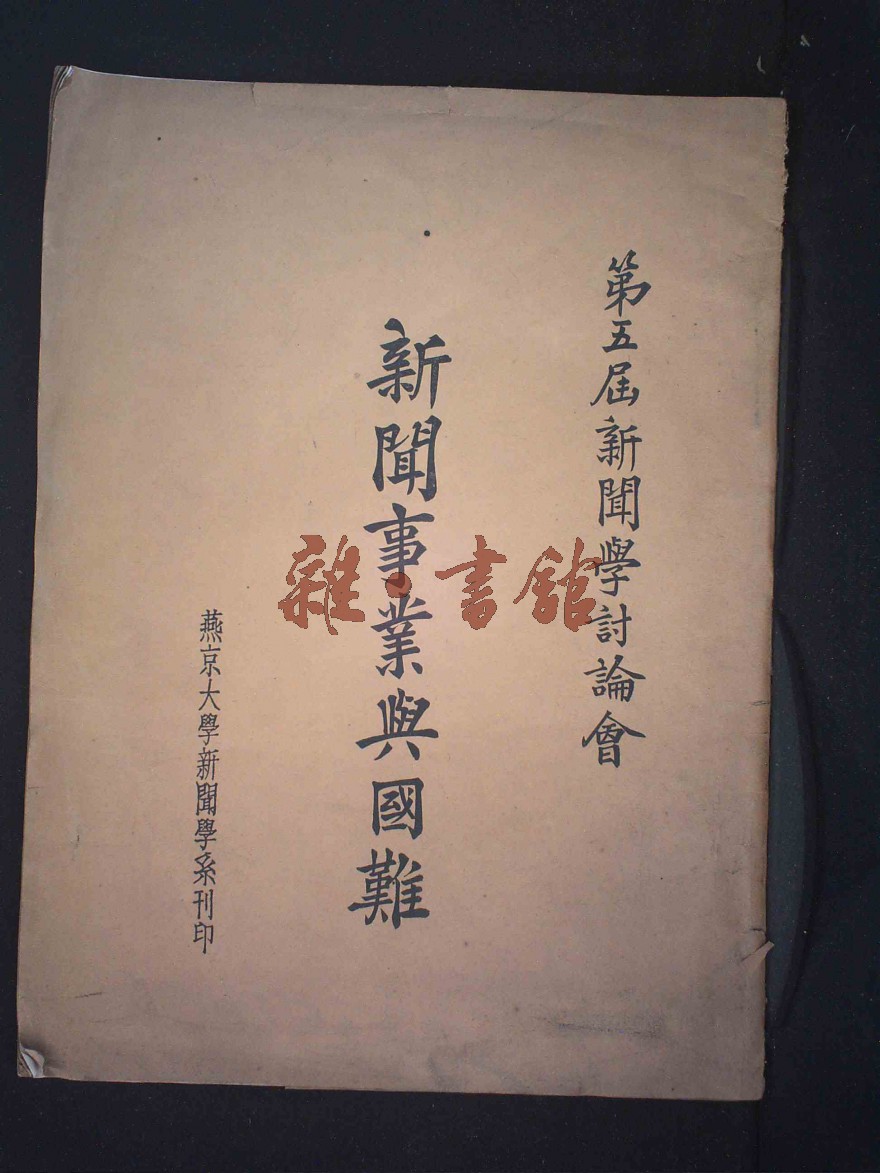 第五屆新聞學討論會
新聞事業與國難
燕京大學新聞學系刊印
雜·書館